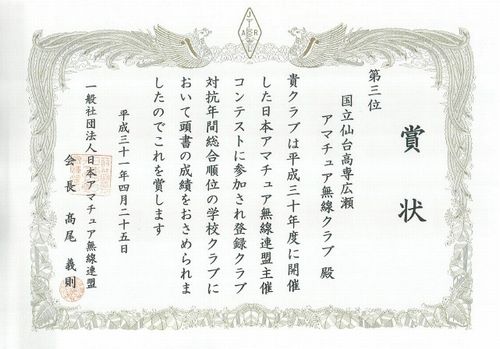 賞状
第三位
国立仙台高専広瀬
アマチュア無線クラブ 殿
貴クラブは平成三十年度に開催
した日本アマチュア無線連盟主催
コンテストに参加され登録クラブ
対抗年間総合順位の学校クラブに
おいて頭書の成績をおさめられま
したのでこれを賞します
平成三十一年四月二十五日
一般社団法人日本アマチュア無線連盟
会長 髙尾 義則